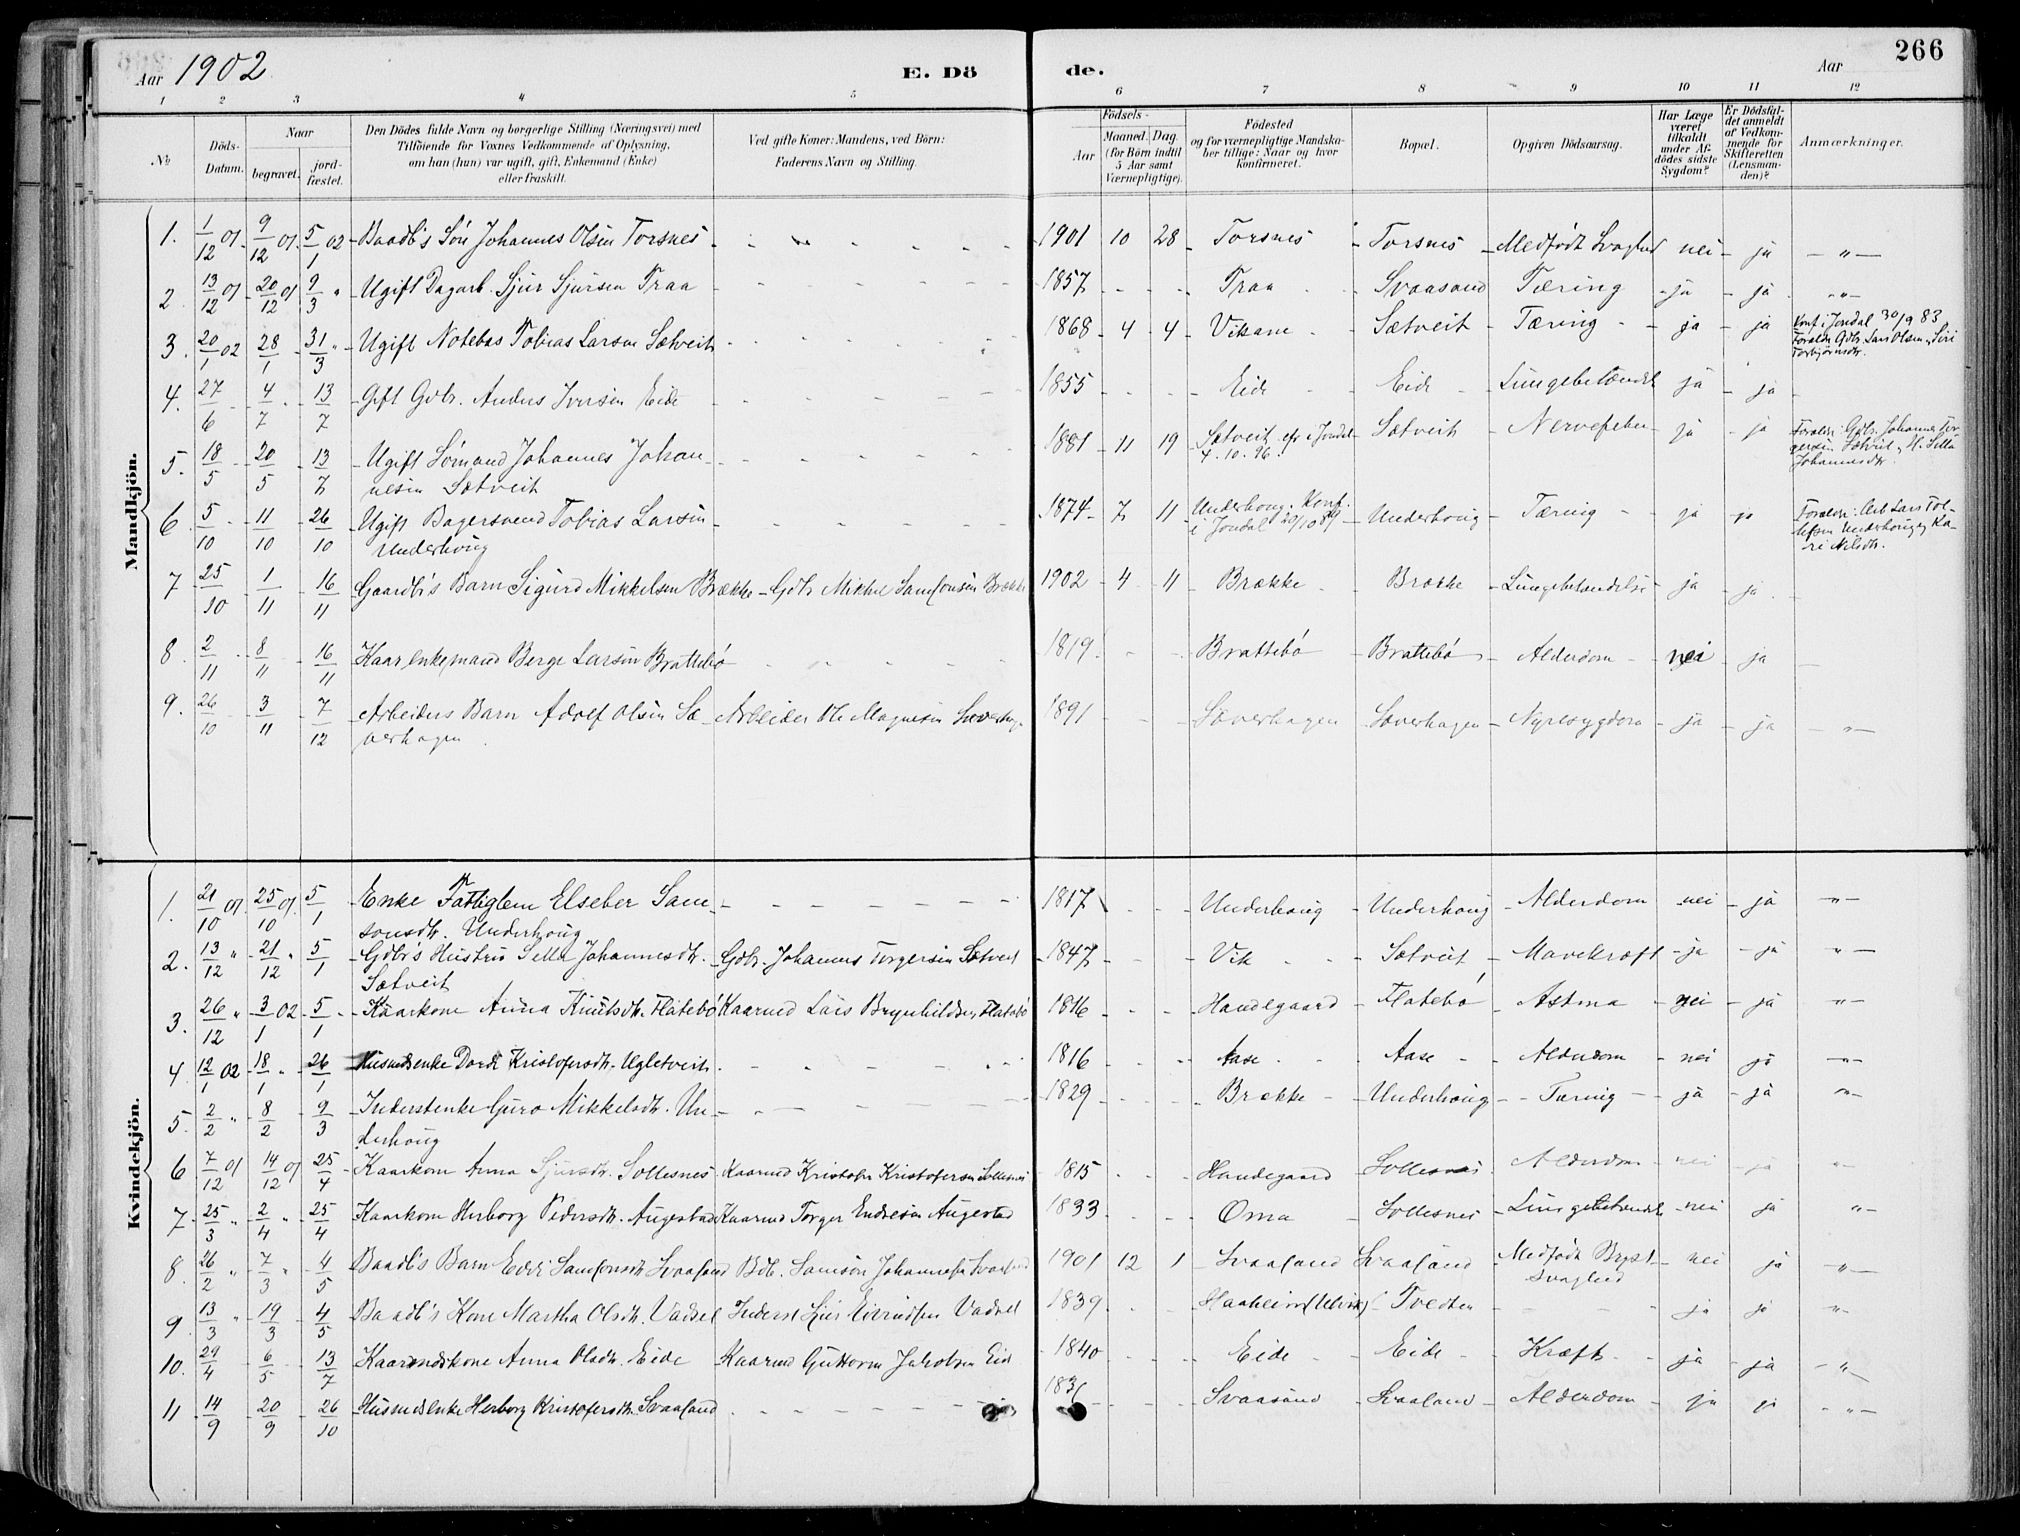 Aar 1902
E. Dö
de.
Aar
266
1 2 3 4 5 6 7 8 9 10 11 12
№
Döds-Datum.
Naar
begravet.
jord-fæstet.
Den Dödes fulde Navn og borgerlige Stilling (Næringsvei) med
Tilföiende for Voxnes Vedkommende af Oplysning,
om han (hun) var ugift, gift, Enkemand (Enke)
eller fraskilt.
Ved gifte Koner: Mandens, ved Börn:
Faderens Navn og Stilling.
Födsels-
Aar
Maaned. Dag.
(for Börn indtil
5 Aar samt
Værnepligtige).
Födested
og for værnepligtige Mandska-
ber tillige: Naar og hvor
konfirmeret.
Bopæl.
Opgiven Dödsaarsag.
Har Læge
været
tilkaldt
under Af-
dödes sidste
Sygdom?
Er Dödsfal-
det anmeldt
af Vedkom-
mende for
Skifteretten
(Lensman-
den)?
Anmærkninger.
Mandkjön.
1. 1/12 01 9/12 01 5/1 02 Baadb's Søn Johannes Olsen Torsnes 1901 10 28 Torsnes Torsnes Medfødt Svaghed nei ja
2 13/12 01 20/12 01 9/3 " Ugift Dagarb. Sjur Sjursen Traa 1857 Traa Svaasand Tæring ja ja
3. 20/1 02 28/1 31/3 " Ugift Notebas Tobias Larsen Sætveit 1868 4 4 Vikane Sætveit Tæring ja ja Konf i Jondal 30/9 83
Forældre Gdb. Lars Olsen, Siri
Torbjørnsdtr.
4. 27/6 4/7 13/7 Gift Gdbr. Anders Iversen Eide 1855 Eide Eide Lungebetændelse ja ja
5. 18/5 20/5 13/7 Ugift Sømand Johannes Johan- 1881 11 19 Sætveit cfr i Jondal Sætveit Nervefeber ja ja Forældre: Gdb. Johannes Tor-
nesen Sætveit 4.10.96. gersen Sætveit, H. Silla
Johannesdtr.
6 5/10 11/10 26/10 Ugift Bagersvend Tobias Larsen 1874 7 11 Underhoug. Konf. Underhoug Tæring ja ja Forældre: Arb. Lars Tol-
Underhoug i Jondal 20/10 89 lefsen Underhoug, Ka-
ri Nilsdtr.
7 25/10 1/11 16/11 Gaardb's Barn Sigurd Mikkelsen Brække Gdb Mikkel Samsonsen Brække 1902 4 11 Brække Brække Lungebetændelse ja ja
8 2/11 8/11 16/11 Kaar, enkemand Berge Larsen Brattebø 1819. Brattebø Brattebø Alderdom nei ja
9. 26/10 3/11 7/12 Arbeiders Barn Adolf Olsen Sæ- Arbeider Ole Magnesen Sæverhagen 1891 Sæverhagen Sæverhagen Nyresygdom ja ja
verhagen
Kvindekjön.
1. 21/10 01 25/10 01. 5/1 Enke Fattiglem Elseber Sam- 1817 Underhoug Underhoug Alderdom nei ja
sonsdtr. Underhoug
2. 13/12 " 21/12 " 5/1 Gdbr's Hustru Silla Johannesdtr. Gdbr. Johannes Torgersen Sætveit 1847 Vik Sætveit Mavekræft ja ja
Sætveit
3. 26/12 " 3/1 02 5/1 Kaarkone Anna Knutsdtr. Flatebø Kaarmd Lars Brynhildsen Flatebø 1816 Handegaard Flatebø Astma nei ja
4 12/1 02 18/1 " 26/1 Husmdsenke Dordi Kristofersdtr. Ugletveit 1816 Aase Aase Alderdom nei ja
5. 2/2 " 8/2 9/3 Inderstenke Guro Mikkelsdtr. Un- 1829 Brække Underhoug Tæring ja ja
derhoug
6 7/12 01 14/12 01 25/4 Kaarkone Anna Sjursdtr. Sollesnes Kaarmd Kristofer Kristofersen Sollesnes 1815 Handegaard Sollesnes Alderdom nei ja
7 25/3 " 2/4 " 25/4 Kaarkone Herborg Pedersdtr. Augestad Kaarmd Torger Endresen Augestad 1833 Oma Sollesnes Lungebetændelse nei ja
8. 26/2 " 7/3 " 4/5 Baadb's Barn Samsonsdtr Svaasand Bdb. Samson Johannesen Svaasand 1901 12 1 Svaasand Svaasand Medfødt Bryst- nei ja
svaghed
9 13/3 " 19/3 4/5 Baadb's Kone Martha Olsdtr. Vadsel Inderst Eivindsen Vadsel 1839 Haaheim (Ulvik) Tvedten ja ja
10. 29/4 6/5 13/7 Kaarmdskone Anna Olsdtr. Eide Kaarmd Guttorm Jakobsen Eide 1840 Eide Eide Kræft ja ja
11 14/9 20/9 26/10 Husmdsenke Herborg Kristofersdtr. Svaasand Svaasand Svaasand Alderdom ja ja